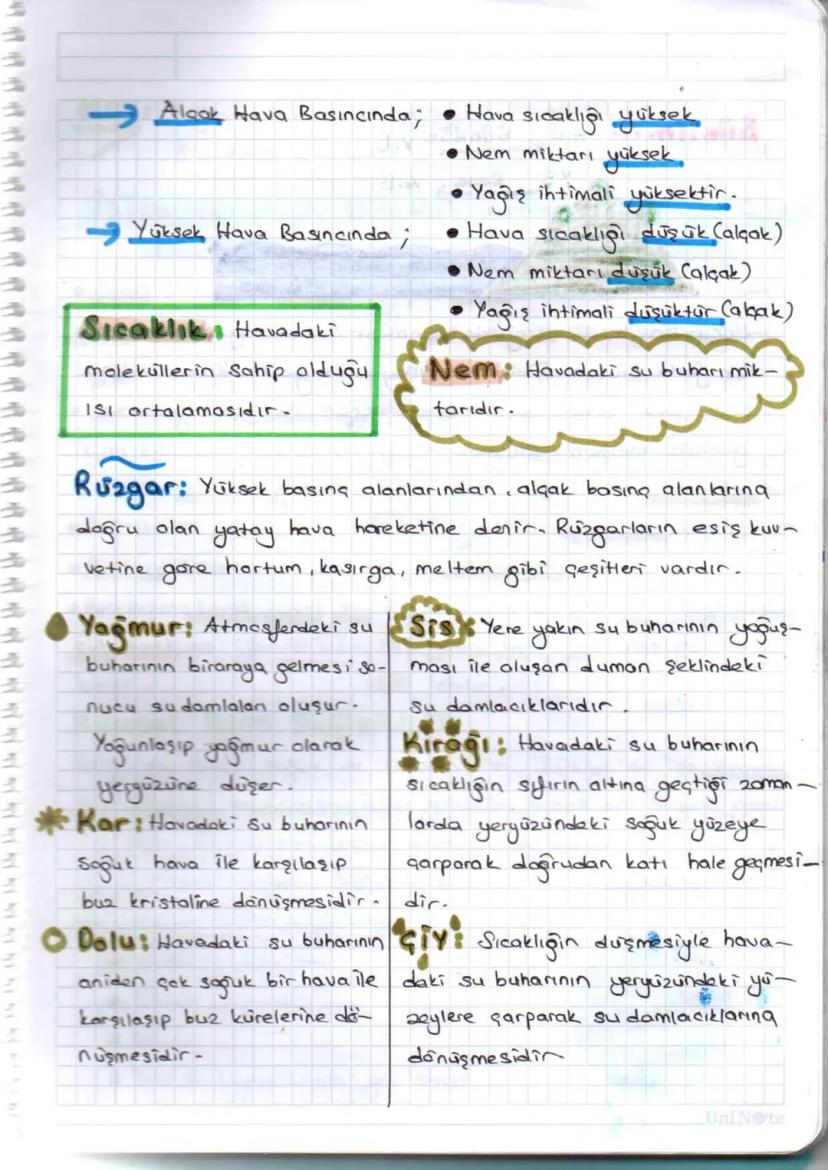 → Alçak Hava Basıncında; • Hava sıcaklığı yüksek
• Nem miktarı yüksek
• Yağış ihtimali yüksektir.
→ Yüksek Hava Basıncında; • Hava sıcaklığı düşük (alçak)
• Nem miktarı düşük (alçak)
• Yağış ihtimali düşüktür (alçak)
Sıcaklık: Havadaki
moleküllerin sahip olduğu
ısı ortalamasıdır.
Nem: Havadaki su buharı mik-
tarıdır.
Rüzgar: Yüksek basınç alanlarından, alçak basınç alanlarına
doğru olan yatay hava hareketine denir. Rüzgarların esiş kuv-
vetine göre hortum, kasırga, meltem gibi çeşitleri vardır.
Yağmur: Atmosferdeki su
buharının biraraya gelmesi so-
nucu su damlaları oluşur.
Yoğunlaşıp yağmur olarak
yeryüzüne düşer.
Kar: Havadaki su buharının
soğuk hava ile karşılaşıp
buz kristaline dönüşmesidir.
Dolu: Havadaki su buharının
aniden çok soğuk bir hava ile
karşılaşıp buz kürelerine dö-
nüşmesidir.
Sis: Yere yakın su buharının yoğuş-
ması ile oluşan duman şeklindeki
su damlacıklarıdır.
Kırağı: Havadaki su buharının
sıcaklığın sıfırın altına geçtiği zaman-
larda yeryüzündeki soğuk yüzeye
çarparak doğrudan katı hale geçmesi-
dir.
ÇİY: Sıcaklığın düşmesiyle hava-
daki su buharının yeryüzündeki yü-
zeylere çarparak su damlacıklarına
dönüşmesidir
UniNote